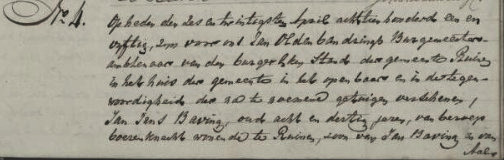 No. 4.
Op heden den zes en twintigsten April achttien honderd een en
vyftig, zyn voor ons Jan Oldenbandringh Burgemeester
ambtenaar van den burgerlyken Stand der gemeente Ruinen
in het huis der gemeente in het openbaar en in de tegen-
woordigheid der na te noemene getuigen verschenen,
Jan Jans Baving, oud acht en dertig jaren, van beroep
boerenknecht wonende te Ruinen, zoon van Jan Baving en van
Aale